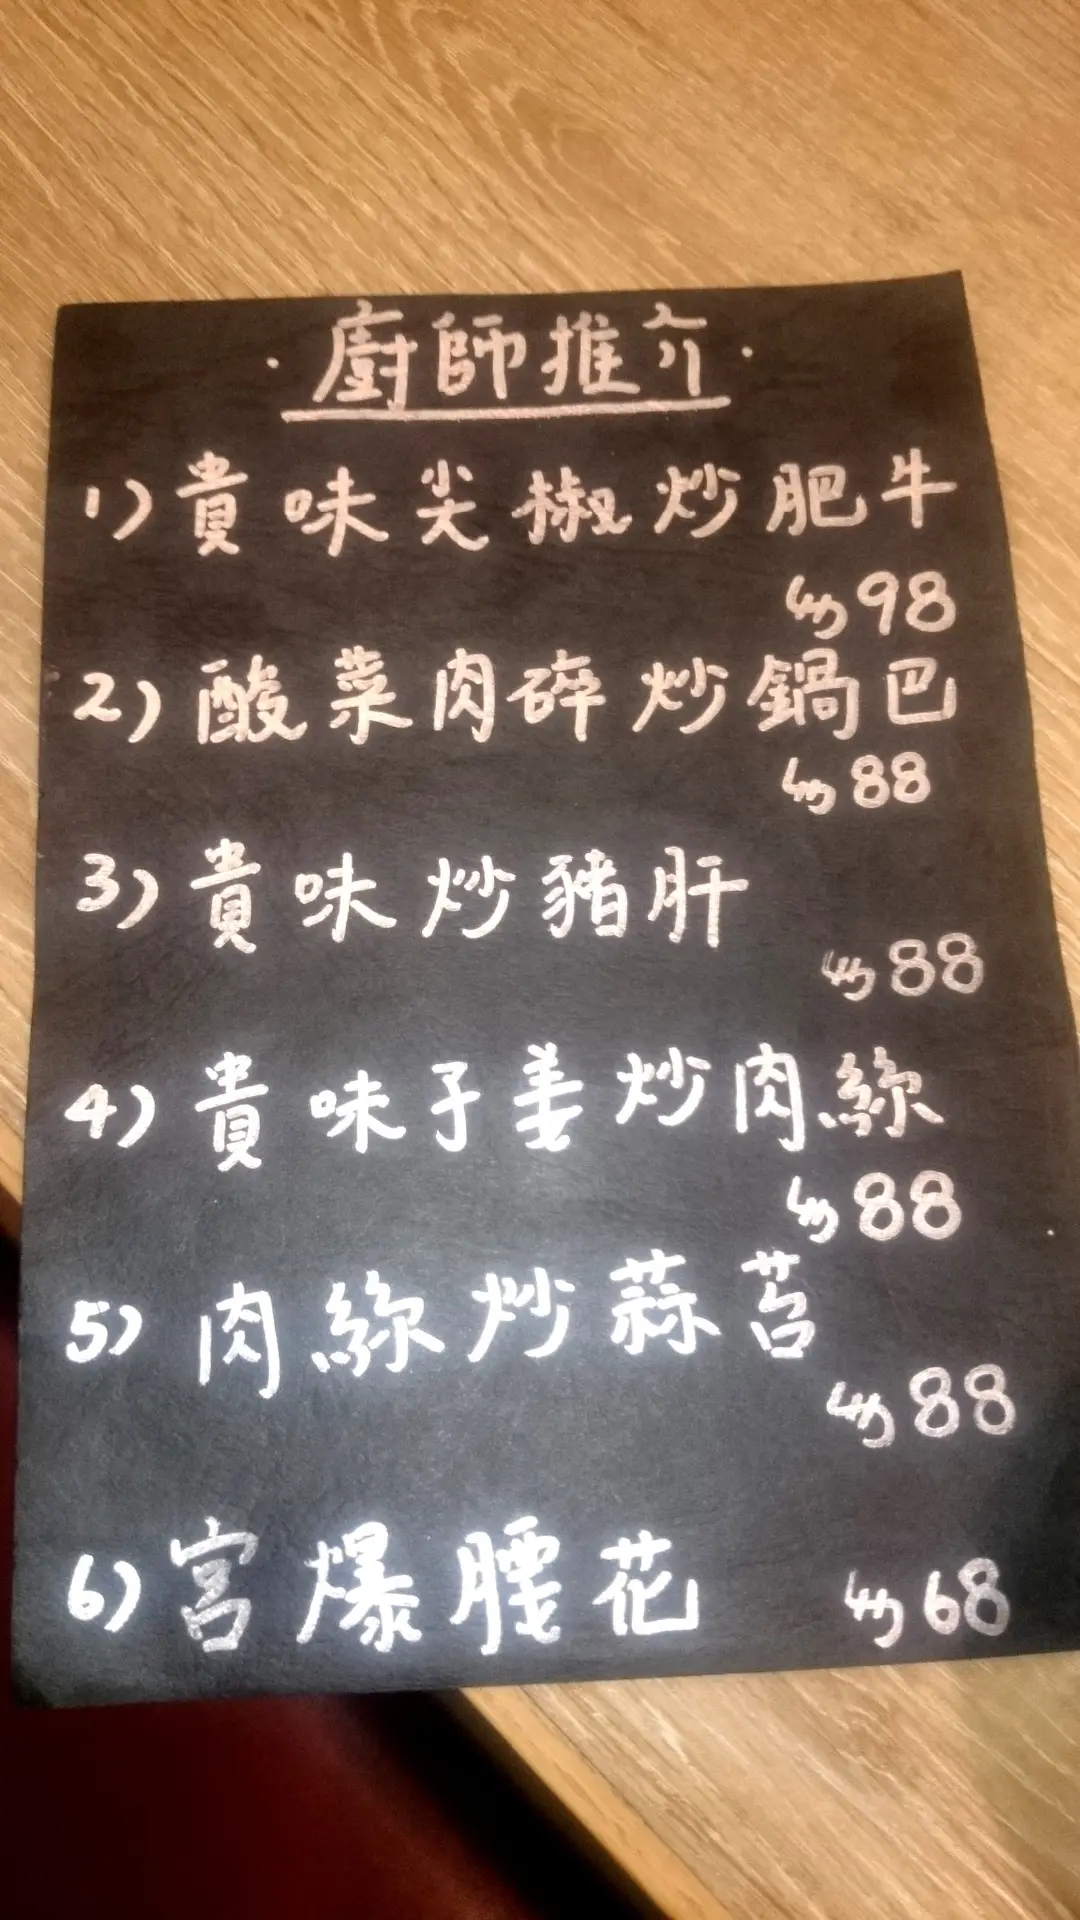 ·廚師推介·
1) 貴味尖椒炒肥牛
98
2) 酸菜肉碎炒鍋巴
88
3) 貴味炒豬肝
88
4) 貴味子姜炒肉絲
88
5) 肉絲炒蒜苔
88
6) 宮爆腰花 68